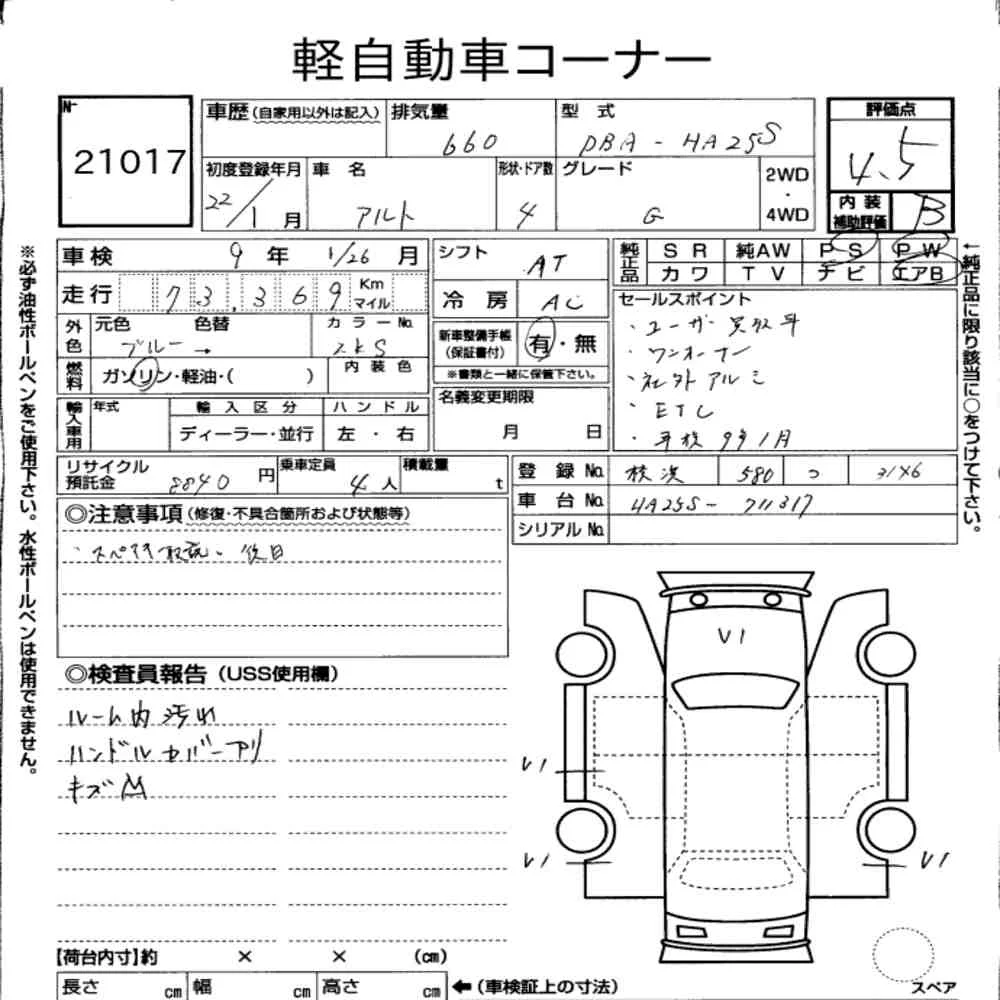 軽自動車コーナー
№ 21017
車歴(自家用以外は記入) 排気量 660 型式 DBA-HA25S
評価点 4.5
初度登録年月 22/1月 車名 アルト 形状・ドア数 4 グレード G 2WD・4WD
内装補助評価 B
車検 9年 1/26月
走行 73,369 Km マイル
外色 元色 ブルー → 色替 カラーNo. ZKS
燃料 ガソリン・軽油・( ) 内装色
輸入車用 年式 輸入区分 ハンドル
ディーラー・並行 左・右
シフト AT
冷房 AC
新車整備手帳(保証書付) 有・無
※書類と一緒に保管下さい。
名義変更期限
月 日
純正品 SR 純AW PS PW
カワ TV ナビ エアB
セールスポイント
・ユーザー買取車
・ワンオーナー
・社外アルミ
・ETC
・車検9年1月
リサイクル預託金 8840円 乗車定員 4人 積載量 t
登録No. 横浜 580
車台No. HA25S-711317
シリアルNo.
◎注意事項(修復・不具合箇所および状態等)
・スペキ取説、後日
◎検査員報告(USS使用欄)
ルーム内汚れ
ハンドルカバーアリ
キズ
V1
V1
V1 V1
【荷台内寸】約 × × (cm)
長さ cm 幅 cm 高さ cm ←(車検証上の寸法)
スペア
※必ず油性ボールペンをご使用下さい。水性ボールペンは使用できません。
←純正品に限り該当に○をつけて下さい。